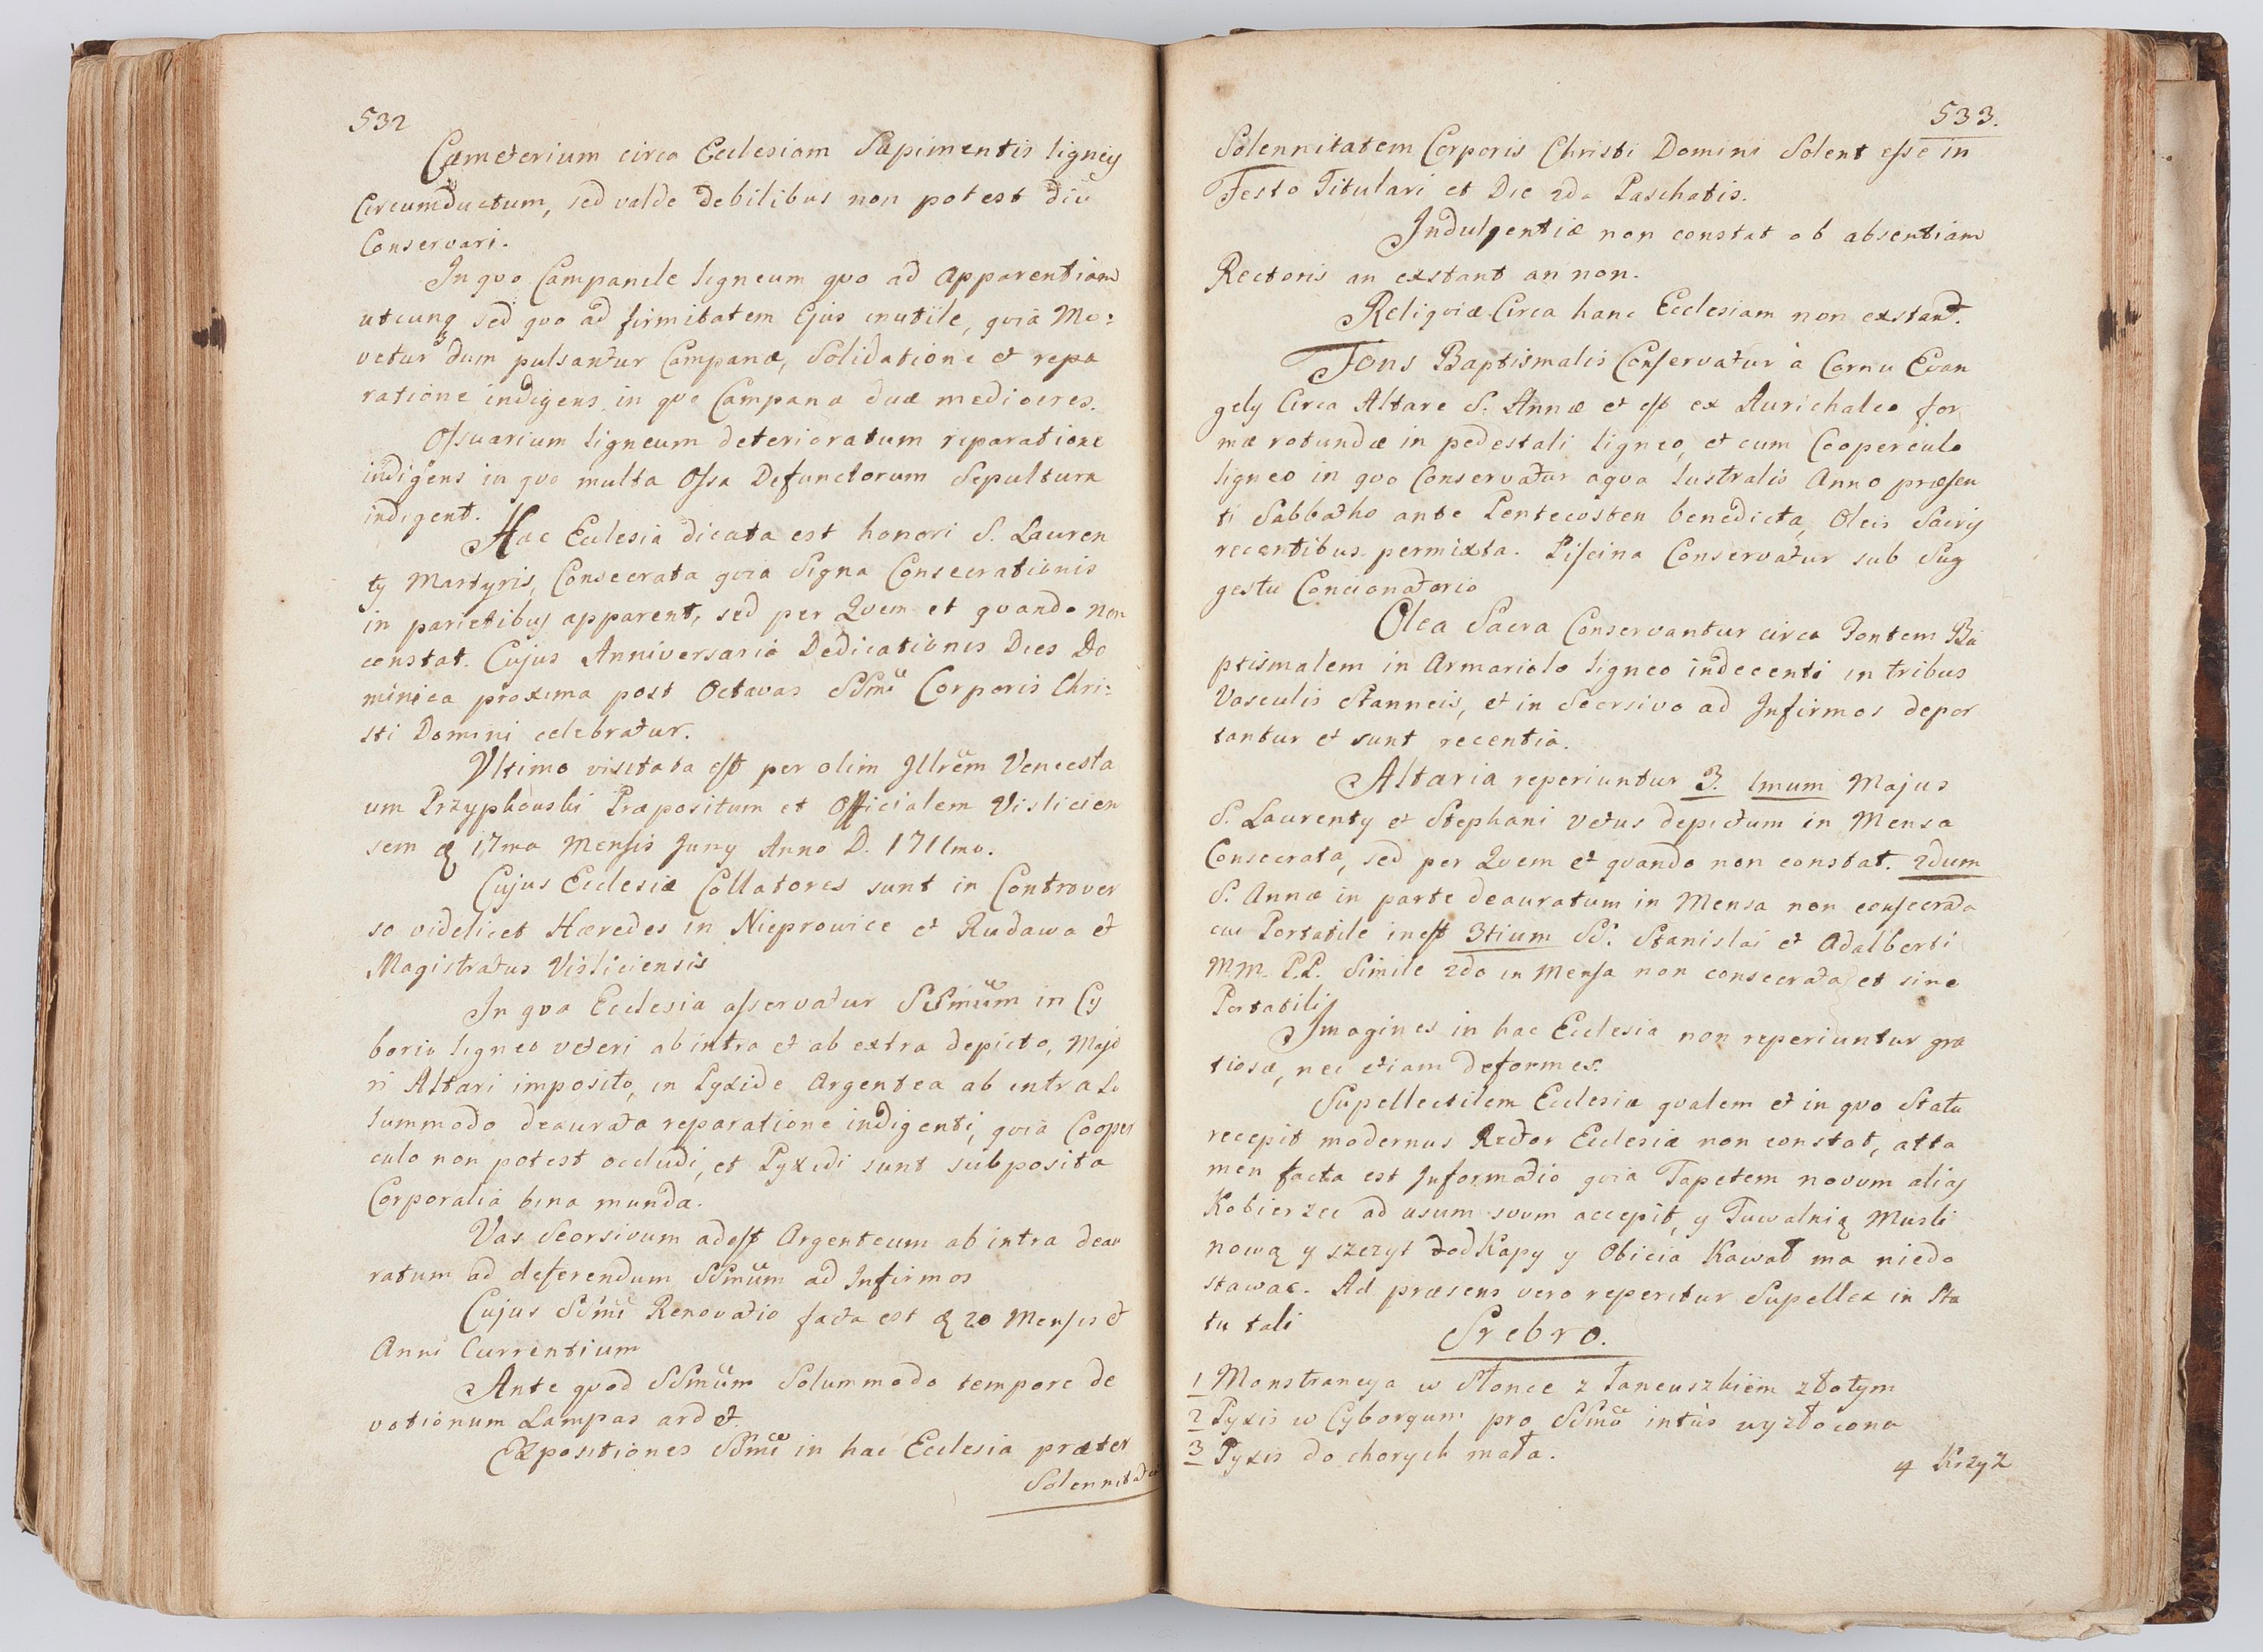 532
Cæmeterium circa Ecclesiam Sæpimentis ligneis
Circumductum, sed valde debilibus non potest diu
Conservari.
In quo Campanile ligneum quo ad apparentiam
utcunq sed quo ad firmitatem Ejus inutile, quia Mo:
vetur dum pulsantur Campanæ, Solidatione et repa
ratione indigens, in quo Campana duæ mediocres.
Ossuarium ligneum deterioratum reparatione
indigens in quo multa Ossa Defunctorum Sepultura
indigent.
Hæc Ecclesia dicata est honori S. Lauren
ty Martyris, Consecrata quia Signa Consecrationis
in parietibus apparent, sed per Quem et quando non
constat. Cujus Anniversaria Dedicationis Dies Do
minica proxima post Octavas SSmi Corporis Chri:
sti Domini celebratur.
Ultimo visitata est per olim Illrem Vencesla
um Przypkouski Præpositum et Officialem Vislicien
sem 17ma Mensis Juny Anno D. 1711mo.
Cujus Ecclesiæ Collatores sunt in Controver
so videlicet Hæredes in Nieprowice et Rudawa et
Magistratus Visliciensis
In qua Ecclesia asservatur SSmum in Cy
borio ligneo veteri ab intra et ab extra depicto, Majo
ri Altari imposito, in Pyxide Argentea ab intra So
lummodo deaurata reparatione indigenti, quia Cooper
culo non potest occludi, et Pyxidi sunt subposita
Corporalia bina munda.
Vas Seorsivum adest Argenteum ab intra deau
ratum ad deferendum SSmum ad Infirmos
Cujus SSmi Renovatio facta est 20 Mensis et
Anni Currentium
Ante quod SSmum Solummodo tempore de
votionum Lampas ardet.
Expositiones SSmi in hac Ecclesia præter
Solennitatem
533.
Solennitatem Corporis Christi Domini Solent esse in
Festo Titulari et Die 2da Paschatis.
Indulgentiæ non constat ob absentiam
Rectoris an extant an non.
Reliquiæ Circa hanc Ecclesiam non extant.
Fons Baptismalis Conservatur à Cornu Evan
gely Circa Altare S. Annæ et est ex Aurichalco for
mæ rotundæ in pedestali ligneo, et cum Cooperculo
ligneo in quo Conservatur aqua lustralis Anno præsen
ti Sabbatho ante Pentecosten benedicta, Oleis Sacris
recentibus permixta. Piscina Conservatur sub Sug
gestu Concionatorio
Olea Sacra Conservantur circa Fontem Ba
ptismalem in Armariolo ligneo indecenti in tribus
Vasculis Stanneis, et in Seorsivo ad Infirmos depor
tantur et sunt recentia.
Altaria reperiuntur 3. 1mum Majus
S. Laurenty et Stephani vetus depictum in Mensa
Consecrata, sed per Quem et quando non constat. 2dum
S. Annæ in parte deauratum in Mensa non consecrata
cui Portatile inest 3tium SS. Stanislai et Adalberti
MM. PP. Simile 2do in Mensa non consecrata et sine
Portatili
Imagines in hac Ecclesia non reperiuntur gra
tiosæ, nec etiam deformes.
Supellectilem Ecclesiæ qualem et in quo Statu
recepit modernus Rector Ecclesiæ non constat, atta
men facta est Informatio quia Tapetem novum alias
Kobierzec ad usum suum accepit, y Tuwalnią Musli
nową y szczyt od Kapy y Obicia Kawał ma niedo
stawac. Ad præsens vero reperitur Supellex in Sta
tu tali
Srebro.
1 Monstrancya w Słonce z Łancuszkiem złotym
2 Pyxis w Cyboryum pro SSmo intùs wyzłocona
3 Pyxis do chorych mała.
4 Krzyż